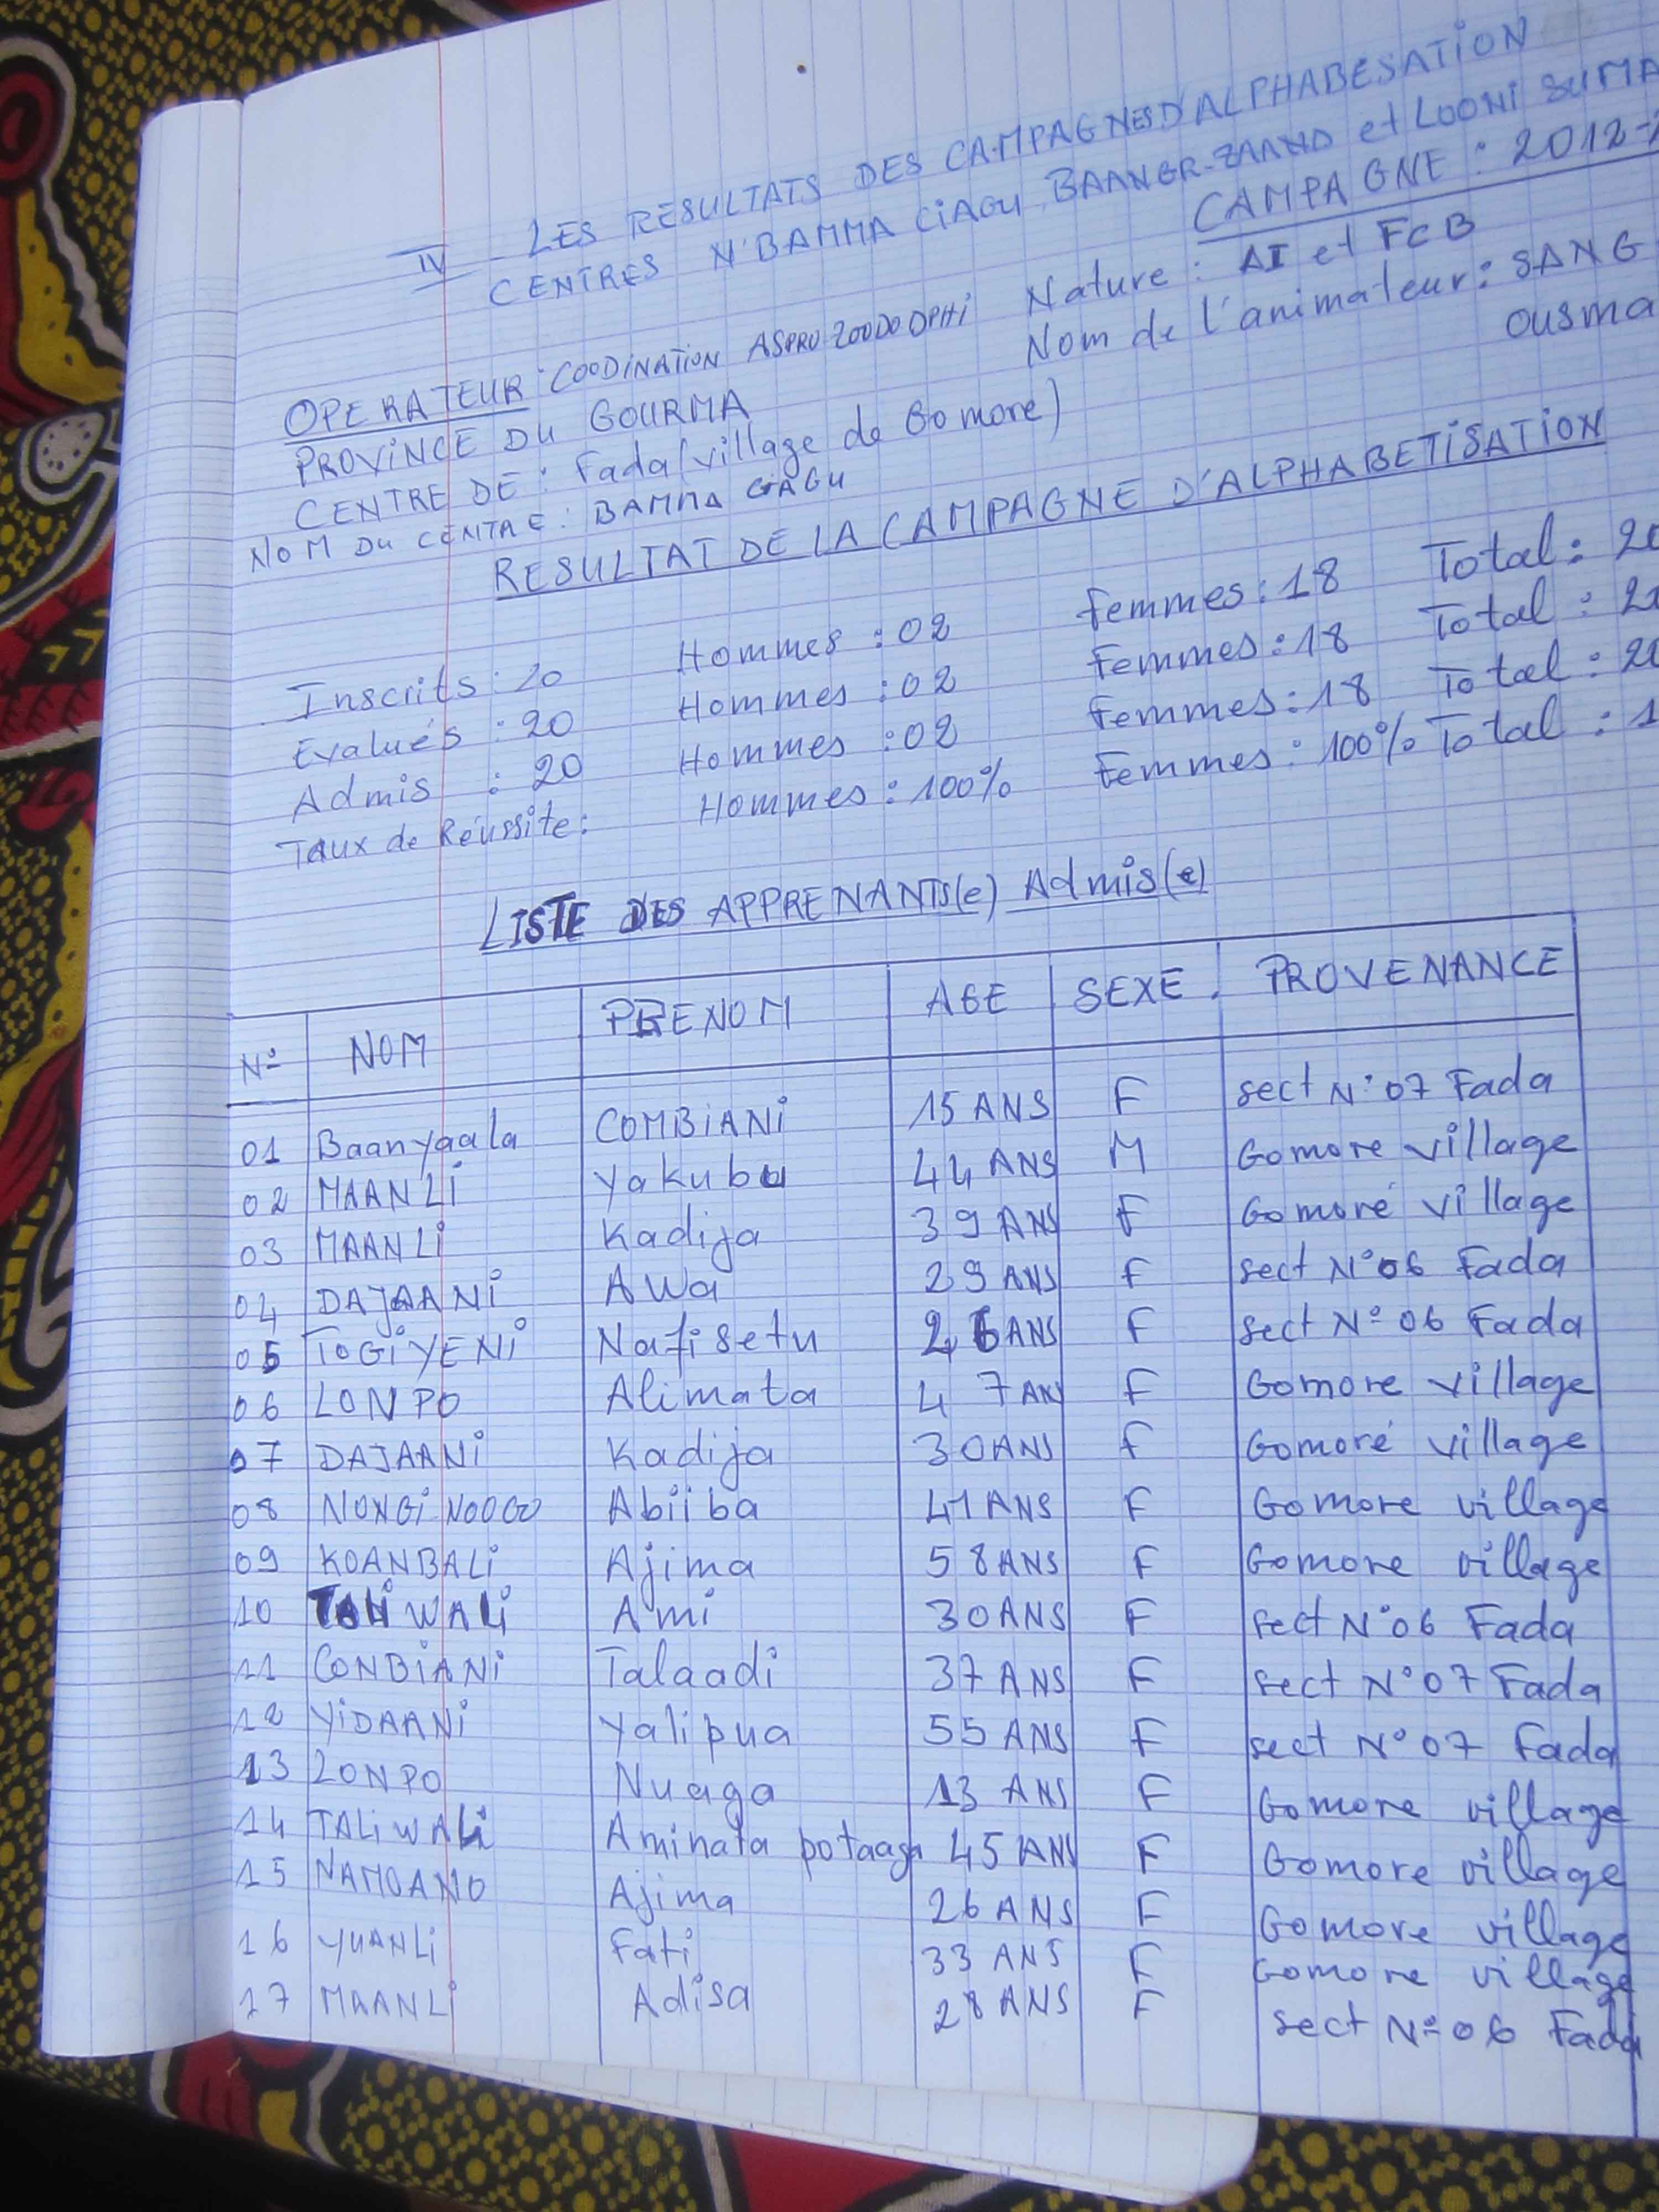 IV LES RESULTATS DES CAMPAGNES D'ALPHABESATION
CENTRES N'BAMMA CIAGU, BAANGR-ZAAND et LOONI SUMA
CAMPAGNE : 2012-
Nature : AI et FCB
Nom de l'animateur : SANG
ousma
OPERATEUR : COODINATION ASPRO ZOODO OPHI
PROVINCE DU GOURMA
CENTRE DE : Fada (village de Gomore)
NOM DU CENTRE : BAMMA CIAGU
RESULTAT DE LA CAMPAGNE D'ALPHABETISATION
Inscrits : 20 Hommes : 02 Femmes : 18 Total : 20
Evalués : 20 Hommes : 02 Femmes : 18 Total : 20
Admis : 20 Hommes : 02 Femmes : 18 Total : 20
Taux de Réussite : Hommes : 100% Femmes : 100% Total : 1
LISTE DES APPRENANTS(e) Admis(e)
N° NOM PRENOM AGE SEXE PROVENANCE
01 Baanyaala COMBIANI 15 ANS F sect N°07 Fada
02 MAANLI Yakubu 44 ANS M Gomore village
03 MAANLI Kadija 39 ANS F Gomoré village
04 DAJAANI AWa 29 ANS F sect N°06 Fada
05 TOGIYENI Nafisetu 26 ANS F sect N° 06 Fada
06 LONPO Alimata 47 ANS F Gomore village
07 DAJAANI Kadija 30 ANS F Gomoré village
08 Abiiba 41 ANS F Gomore village
09 KOANBALI Ajima 58 ANS F Gomore village
10 TALIWALI Ami 30 ANS F sect N°06 Fada
11 CONBIANI Talaadi 37 ANS F sect N°07 Fada
12 YIDAANI Yalipua 55 ANS F sect N°07 Fada
13 LONPO Nuaga 13 ANS F Gomore village
14 TALIWALI Aminata potaaga 45 ANS F Gomore village
15 NAMOANO Ajima 26 ANS F Gomore village
16 YUANLI Fati 33 ANS F Gomore village
17 MAANLI Adisa 28 ANS F sect N° 06 Fada